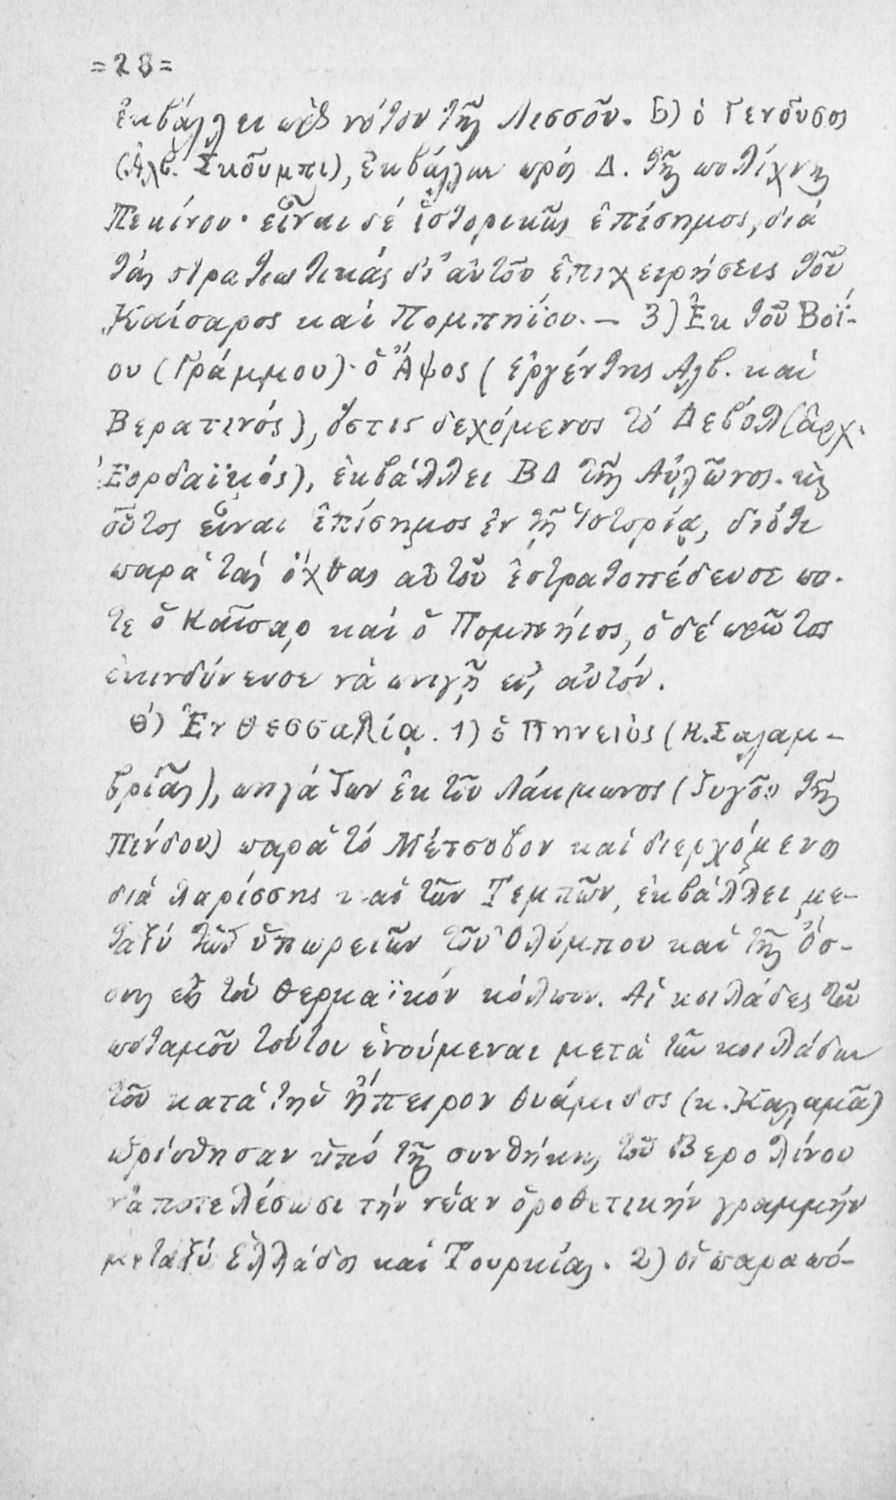 =28=
ἐκβάλλει πρὸς νότον τῆς Λισσοῦ. Б) ὁ Γενοῦσος
(Ἀλβ. Σκοῦμπι), ἐκβάλλων πρός Δ. τῆς πολίχνης
Πεκίνου· εἶναι δέ ἱστορικῶς ἐπίσημος, διά
τάς στρατιωτικάς δι' αὐτοῦ ἐπιχειρήσεις τοῦ
Καίσαρος καί Πομπηΐου. — 3) Ἐκ τοῦ Βοΐ-
ου (Γράμμου)· ὁ Ἄψος (Ἐργέντης Ἀλβ. καί
Βερατινός), ὅστις δεχόμενος τό Δεβόλ (ἀρχ.
Ἐορδαϊκός), ἐκβάλλει ΒΔ τῆς Αὐλῶνος. κ̀
οὗτος εἶναι ἐπίσημος ἐν τῇ Ἱστορίᾳ, διότι
παρά τάς ὄχθας αὐτοῦ ἐστρατοπέδευσε πο-
τε ὁ Καῖσαρ καί ὁ Πομπήιος, ὁ δέ πρῶτος
ἐκινδύνευσε νά πνιγῇ εἰς αὐτόν.
θ') Ἐν Θεσσαλίᾳ. 1) ὁ Πηνειός (κ. Σαλαμ-
βριᾶς), πηγάζων ἐκ τοῦ Λάκμωνος (ζυγοῦ τῆς
Πίνδου) παρά τό Μέτσοβον καί διερχόμενος
διά Λαρίσσης καί τῶν Τεμπῶν, ἐκβάλλει με-
ταξύ τῶν ὑπωρειῶν τοῦ Ὀλύμπου καί τῆς Ὄσ-
σης εἰς τόν Θερμαϊκόν κόλπον. Αἱ κοιλάδες τοῦ
ποταμοῦ τούτου ἑνούμεναι μετά τῶν κοιλάδων
τοῦ κατά τήν Ἤπειρον Θυάμιδος (κ. Καλαμᾶ)
ὡρίσθησαν ὑπό τῆς συνθήκης τοῦ Βερολίνου
ν' ἀποτελέσωσι τήν νέαν ὁροθετικήν γραμμήν
μεταξύ Ἑλλάδος καί Τουρκίας. 2) οἱ παραπό-